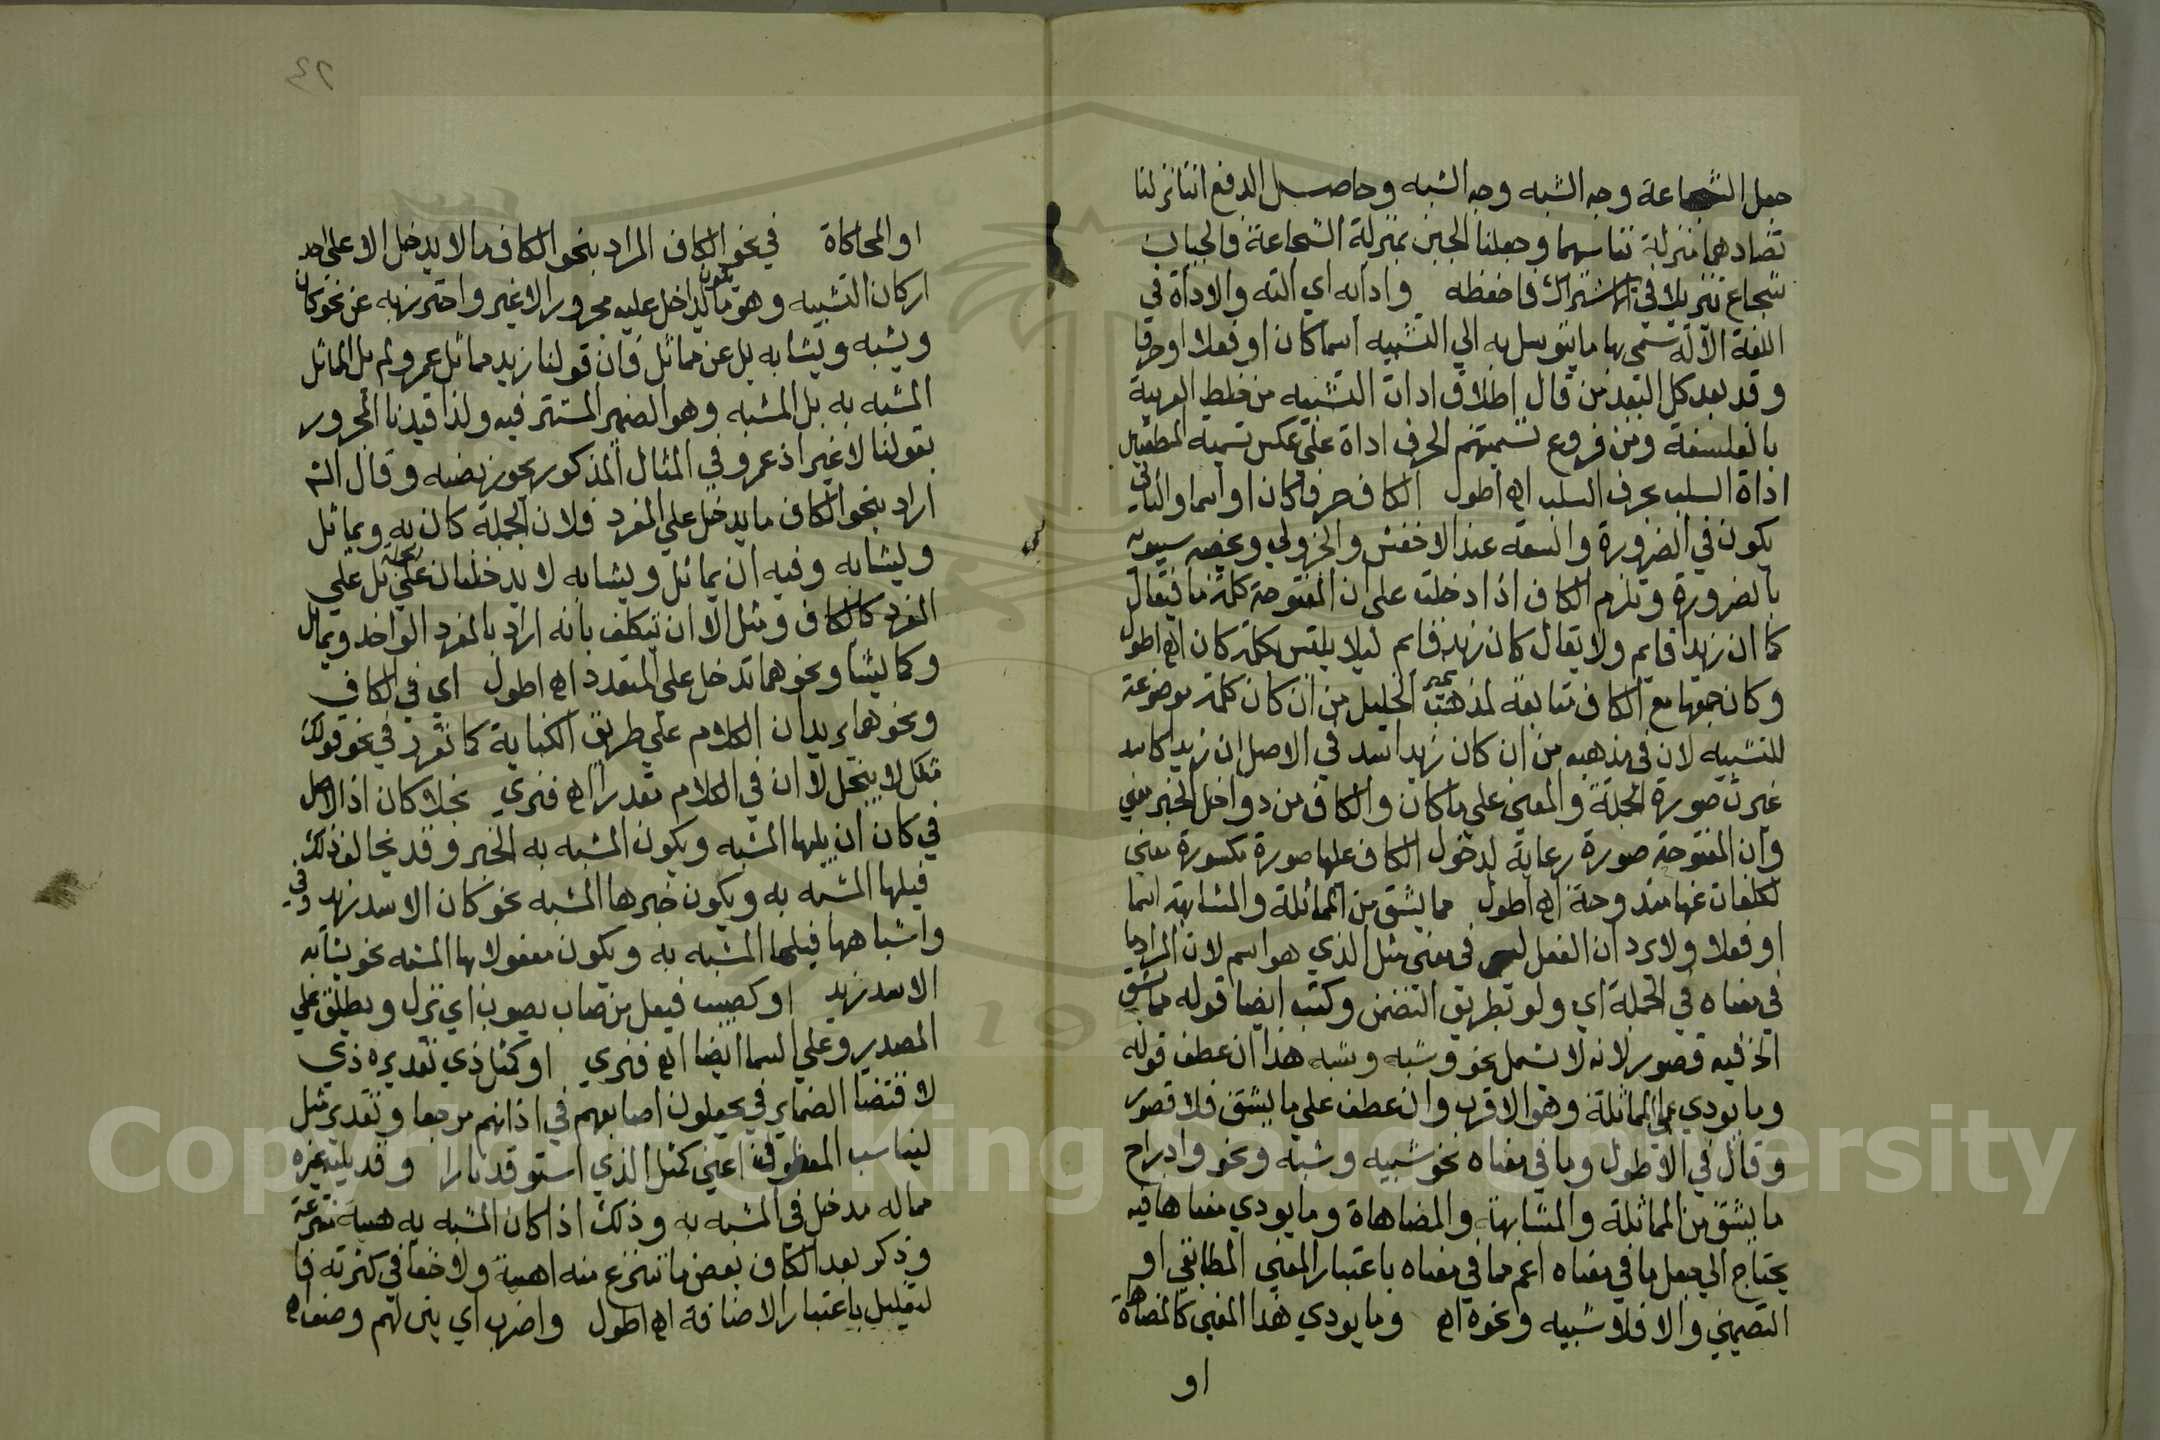 جعل الشجاعة وجه الشبه وجه الشبه وحاصل الدفع اننا نزلنا
تضادهما منزلة تناسبهما وجعلنا الجبن بمنزلة الشجاعة فالجبان
شجاع تنزيلا في الاشتراك فاحفظه واداته اي الته والاداة في
اللغة الآلة سمي بها ما يتوسل به الي التشبيه اسما كان او فعلا او حرفا
وقد بعد كل البعد من قال اطلاق ادات التشبيه من خلط العربية
بالفلسفة ومن فروع تسميتهم الحرف اداة علي عكس تسمية المنطقيين
اداة السلب بحرف السلب اهـ اطول الكاف حرفا كان او اسما والثاني
يكون في الضرورة والسعة عند الاخفش والجزولي وخصه سيبويه
بالضرورة وتلزم الكاف اذا دخلت علي ان المفتوحة كلمة ما فيقال
كما ان زيدا قايم ولا يقال كان زيد قايم ليلا يلتبس بكلمة كان اهـ اطول
وكان جمعها مع الكاف متابعة لمذهب الخليل من ان كان كلمة موضوعة
للتشبيه لان في مذهبه من ان كان زيدا اسد في الاصل ان زيدا كاسد
غيرت صورة الجملة والمعني علي ما كان والكاف من دواخل الخبر معني
وان المفتوحة صورة رعاية لدخول الكاف عليها صورة مكسورة معني
لكلفات عنها مندوحة اهـ اطول مما يشتق من المماثلة والمشابهة اسما
او فعلا ولا يرد ان الفعل ليس في معني مثل الذي هو اسم لان المراد ما
في معناه في الجملة اي ولو بطريق التضمن وكتب ايضا قوله مما يشتق
الخ فيه قصور لانه لا يشمل نحو وشبه وشبه هذا ان عطف قوله
وما يودي علي المماثلة وهو الاقرب وان عطف علي ما يشتق فلا قصور
وقال في الاطول وما في معناه نحو شبيه وشبه ونحو وادراج
ما يشتق من المماثلة والمشابهة والمضاهاة وما يودي معناها فيه
يحتاج الي جعل ما في معناه اعم مما في معناه باعتبار المعني المطابقي او
التضمني والا فلا شبيه ونحوه اهـ وما يودي هذا المعني كالمضاهاة
او
او المحاكاة في نحو الكاف المراد بنحو الكاف ما لا يدخل الا علي احد
اركان التشبيه وهو ما يكون الداخل عليه مجرورا لا غير واحترز به عن نحو كان
ويشبه ويشابه بل عن مماثل فان قولنا زيد مماثل عمرو لم يل المماثل
المشبه به بل المشبه وهو الضمير المستتر فيه ولذا قيدنا المجرور
بقولنا لا غير اذ عمرو في المثال المذكور يجوز نصبه وقال الشـ
اراد بنحو الكاف ما يدخل علي المفرد فلان الجملة كان به ويماثل
ويشابه وفيه ان يماثل ويشابه لا يدخلان علي جملة بل علي
المفرد كالكاف ومثل الا ان يتكلف بانه اراد بالمفرد الواحد ويماثل
وكما يشا ونحوهما تدخل علي المتعدد اهـ اطول اي في الكاف
ونحوهما يريد ان الكلام علي طريق الكناية كما تقرر في نحو قولك
مثلك لا يبخل لا ان في الكلام مقدرا اهـ فنري بخلا كان اذ الاصل
في كان ان يليها المشبه ويكون المشبه به الخبر وقد يخالف ذلك
فيلها المشبه به ويكون خبرها المشبه نحو كان الاسد زيد وفي
واشباهها فيلها المشبه به ويكون معفولا بها المشبه نحو يشابه
الاسد زيد او كصيب فيعل من صاب يصوب اي نزل ويطلق علي
المصدر وعلي السما ايضا اهـ فنري او كمثل ذي تقديره ذي
لاقتضا الضماير في يجعلون اصابعهم في اذانهم مرجعا وتقدير مثل
ليناسب المعطوف اعني كمثل الذي استوقد نارا وقد يليه غيره
مما له مدخل في المشبه به وذلك اذا كان المشبه به هيية منتزعة
وذكر بعد الكاف بعض ما تنتزع منه الهيية ولا خفا في كثرته فا
لتقليل باعتبار الاضافة اهـ اطول واضرب اي بين لهم وصف